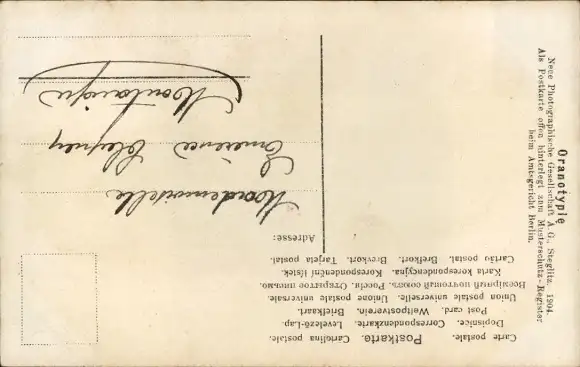 Carte postale. Postkarte. Cartolina postale.
Dopisnice. Correspondenzkarte. Levelező-Lap.
Post card. Weltpostverein. Briefkaart.
Union postale universelle. Unione postale universale.
Всемірный почтовый союзъ. Россія. Открытое письмо.
Karta korespondencyjna. Korespondenční lístek.
Cartão postal. Brefkort. Brevkort. Tarjeta postal.
Adresse:
Mademoiselle
Montaigu
Oranotypie
Neue Photographische Gesellschaft A.G., Steglitz. 1904.
Als Postkarte offen hinterlegt zum Musterschutz-Register
beim Amtsgericht Berlin.